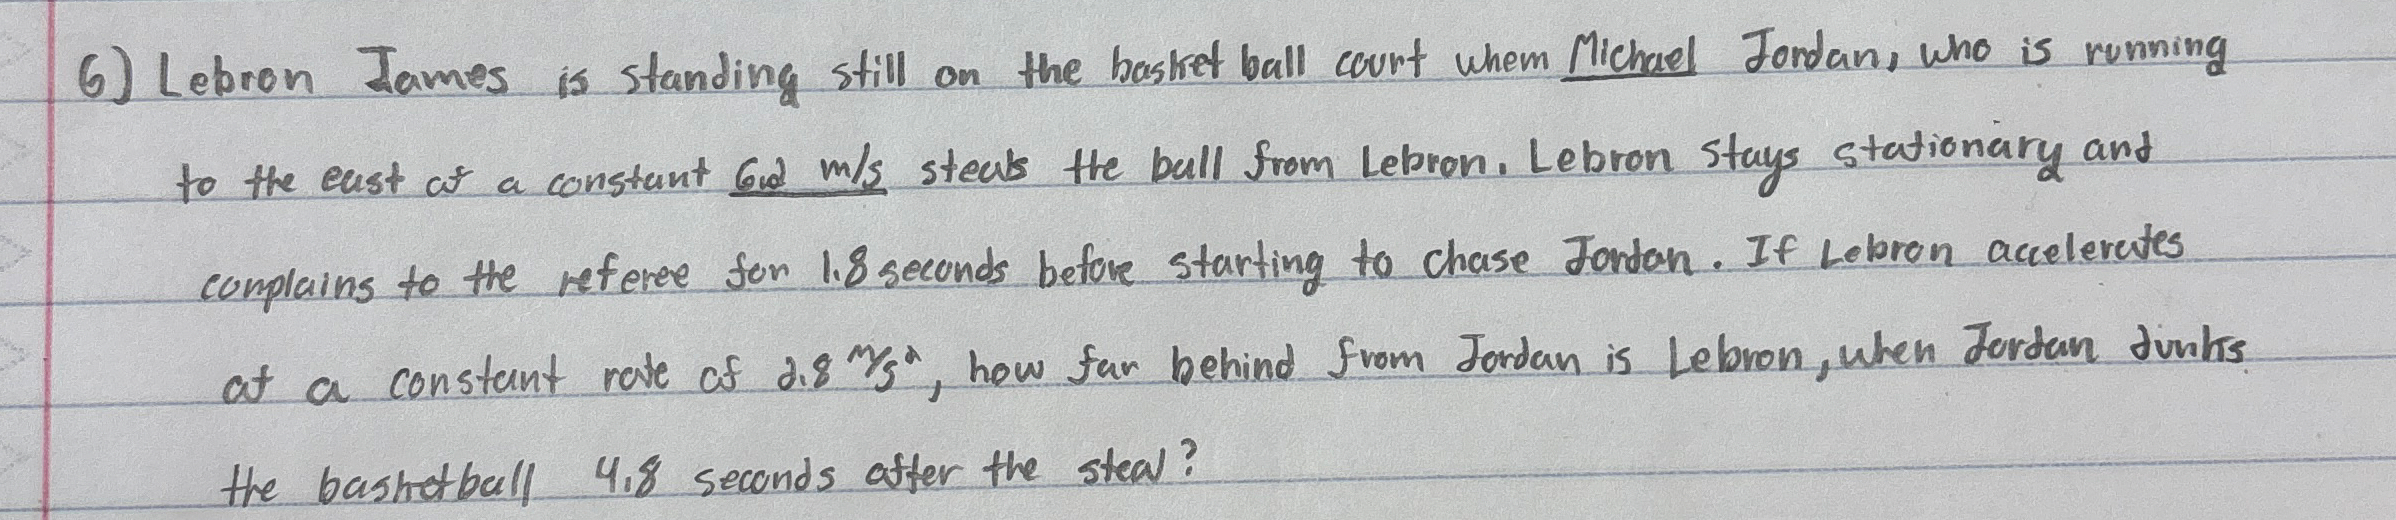 6) Lebron James is standing still on the basket ball court whem Michael Jordan, who is running
to the east at a constant 6.2 m/s steals the ball from Lebron. Lebron stays stationary and
complains to the referee for 1.8 seconds before starting to chase Jordan. If Lebron accelerates
at a constant rate of 2.8 m/s², how far behind from Jordan is Lebron, when Jordan dunks
the basketball 4.8 seconds after the steal?